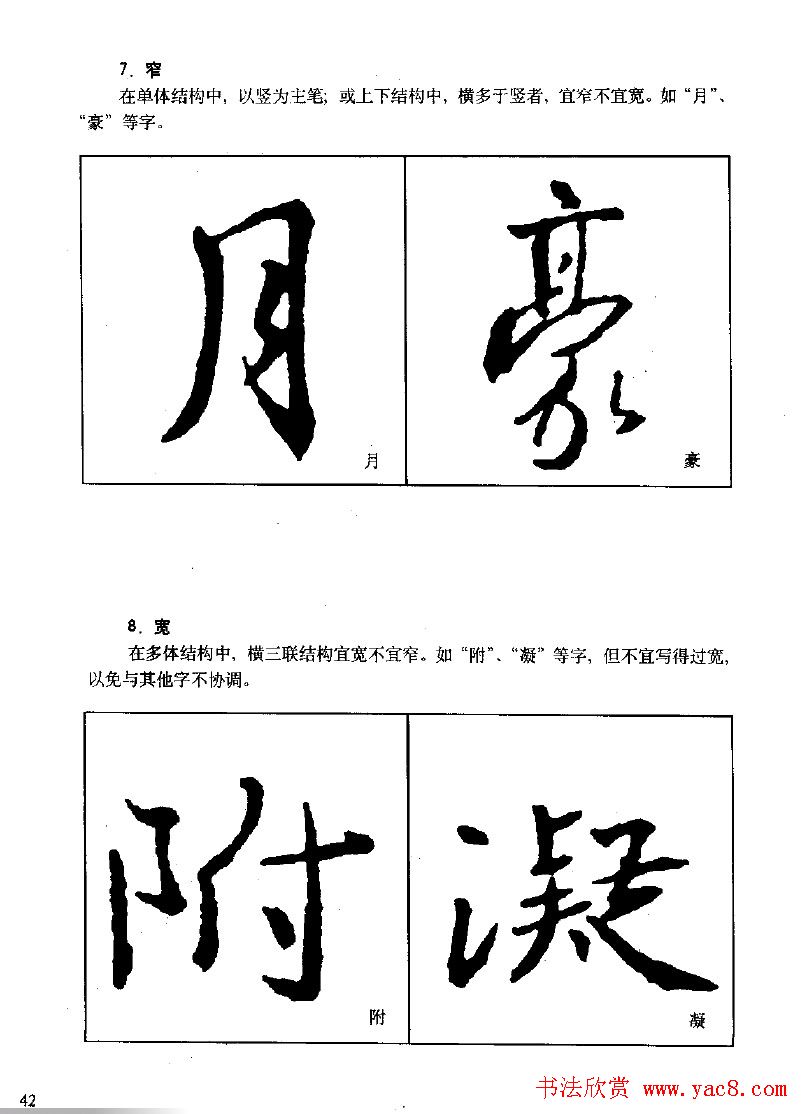 7. 窄
在单体结构中，以竖为主笔；或上下结构中，横多于竖者，宜窄不宜宽。如“月”、
“豪”等字。
月 豪
月 豪
8. 宽
在多体结构中，横三联结构宜宽不宜窄。如“附”、“凝”等字，但不宜写得过宽，
以免与其他字不协调。
附 凝
附 凝
42
书法欣赏 www.yac8.com